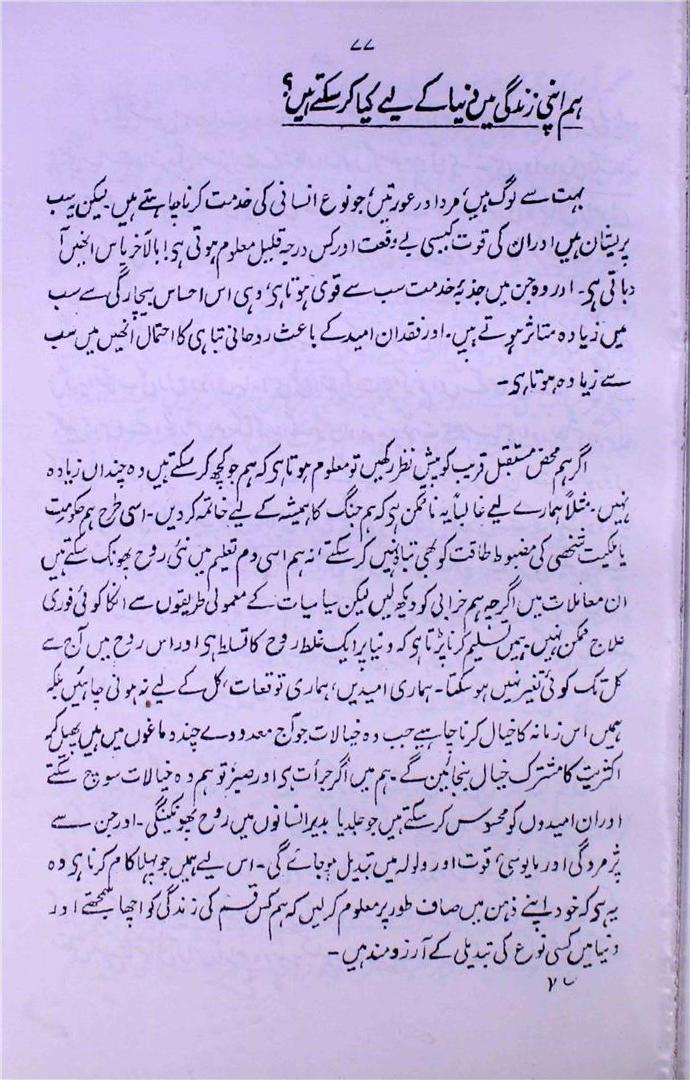 ۷۷
ہم اپنی زندگی میں دنیا کے لیے کیا کر سکتے ہیں؟
بہت سے لوگ ہیں، مرد اور عورتیں، جو نوع انسانی کی خدمت کرنا چاہتے ہیں۔ لیکن یہ سب
پریشان ہیں اور ان کی قوت کیسی بے وقعت اور کس درجہ قلیل معلوم ہوتی ہی! بالآخر یاس انھیں آ
دباتی ہی۔ اور وہ جن میں جذبۂ خدمت سب سے قوی ہوتا ہی، وہی اس احساس بیچارگی سے سب
میں زیادہ متاثر ہوتے ہیں۔ اور فقدان امید کے باعث روحانی تباہی کا احتمال انھیں میں سب
سے زیادہ ہوتا ہی۔
اگر ہم محض مستقبل قریب کو پیش نظر رکھیں تو معلوم ہوتا ہی کہ ہم جو کچھ کر سکتے ہیں وہ چنداں زیادہ
نہیں۔ مثلاً ہمارے لیے غالباً یہ ناممکن ہی کہ ہم جنگ کا ہمیشہ کے لیے خاتمہ کر دیں۔ اسی طرح ہم حکومت
یا ملکیت شخصی کی مضبوط طاقت کو بھی تباہ نہیں کر سکتے، نہ ہم اسی دم تعلیم میں نئی روح پھونک سکتے ہیں
ان معاملات میں اگرچہ ہم خرابی کو دیکھ لیں لیکن سیاسیات کے معمولی طریقوں سے انکا کوئی فوری
علاج ممکن نہیں، ہمیں تسلیم کرنا پڑتا ہی کہ دنیا پر ایک غلط روح کا تسلط ہی اور اس روح میں آج سے
کل تک کوئی تغیر نہیں ہو سکتا۔ ہماری امیدیں، ہماری توقعات، کل کے لیے نہ ہونی چاہئیں بلکہ
ہمیں اس زمانہ کا خیال کرنا چاہیے جب وہ خیالات جو آج معدودے چند دماغوں میں ہیں پھیل کر
اکثریت کا مشترک خیال بنجائیں گے۔ ہم میں اگر جرأت ہی اور صبر تو ہم وہ خیالات سوچ سکتے
اور ان امیدوں کو محسوس کر سکتے ہیں جو جلد یا بدیر انسانوں میں روح پھونکینگی۔ اور جن سے
پژمردگی اور مایوسی، قوت اور ولولہ میں تبدیل ہو جائے گی۔ اس لیے ہمیں جو پہلا کام کرنا ہی وہ
یہ ہی کہ خود اپنے ذہن میں صاف طور پر معلوم کر لیں کہ ہم کس قسم کی زندگی کو اچھا سمجھتے اور
دنیا میں کسی نوع کی تبدیلی کے آرزو مند ہیں۔